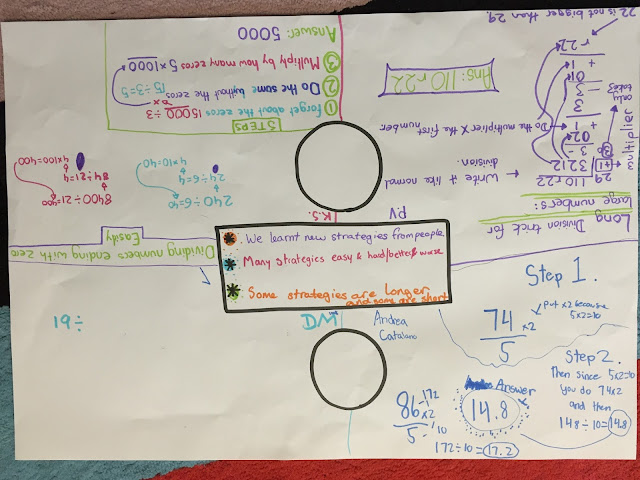 We learnt new strategies from people.
Many strategies easy & hard/better & worse
Some strategies are longer
and some are short
P.V
K.S.
DM
Andrea
Catalano
Step 1.
74
5
x2
put x2 because
5x2=10
Step 2.
Then since 5x2=10
you do 74x2
and then
148÷10=14.8
Answer
14.8
86
5
x2
172
10
172÷10=17.2
19÷
Long Division trick for
large numbers:
29 110 r22
3212
← Write it like normal
division.
Do the multiplier X the first
number
multiplier
only
take 3
22 is not bigger than 29.
Ans: 110 r22
Dividing numbers ending with zero
Easily
240÷6=40
24÷6=4
4x10=40
8400÷21=400
84÷21=4
4x100=400
STEPS
1 Forget about the zeros 15000÷3
2 Do the same without the zeros 15÷3=5
3 Multiply by how many zeros 5x1000
Answer: 5000